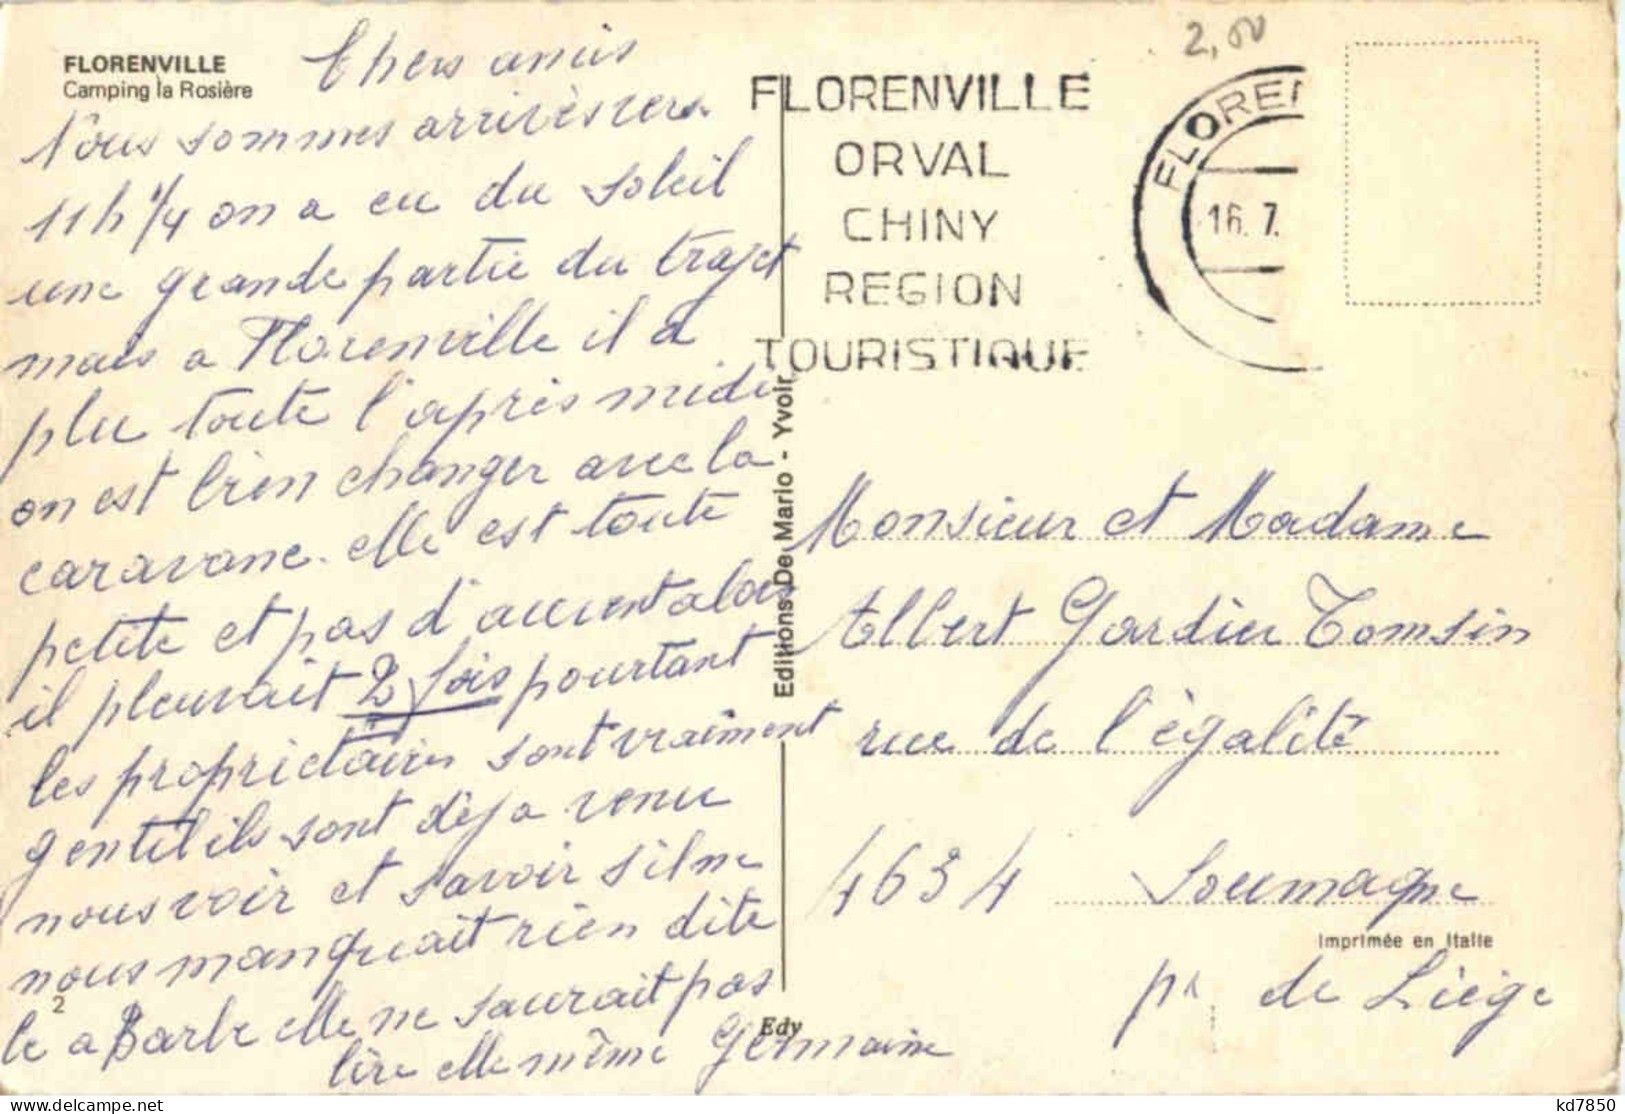 FLORENVILLE
Camping la Rosière
Chers amis
Nous sommes arrivès vers
11h 1/4 on a eu du soleil
une grande partie du trajet
mais a Florenville il a
plu toute l'après midi
on est bien changer avec la
caravane. elle est toute
petite et pas d'auvent alors
il pleuvait 2 fois pourtant
les proprietaires sont vraiment
gentil ils sont dèja venu
nous voir et savoir s'il ne
nous manquait rien dite
le a Barbe elle ne saurait pas
lire elle même Germaine
2
Editions De Mario - Yvoir
Edy
2,00
FLORENVILLE
ORVAL
CHINY
REGION
TOURISTIQUE
FLOREN
16. 7.
Monsieur et Madame
Albert Gardier Tomsin
rue de l'égalité
4634 Soumagne
Imprimée en Italie
pr de Liège
kd7850